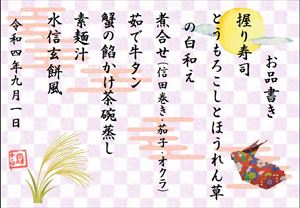 お品書き
握り寿司
とうもろこしとほうれん草
の白和え
煮合せ(信田巻き・茄子・オクラ)
茹で牛タン
蟹の餡かけ茶碗蒸し
素麺汁
水信玄餅風
令和四年九月一日